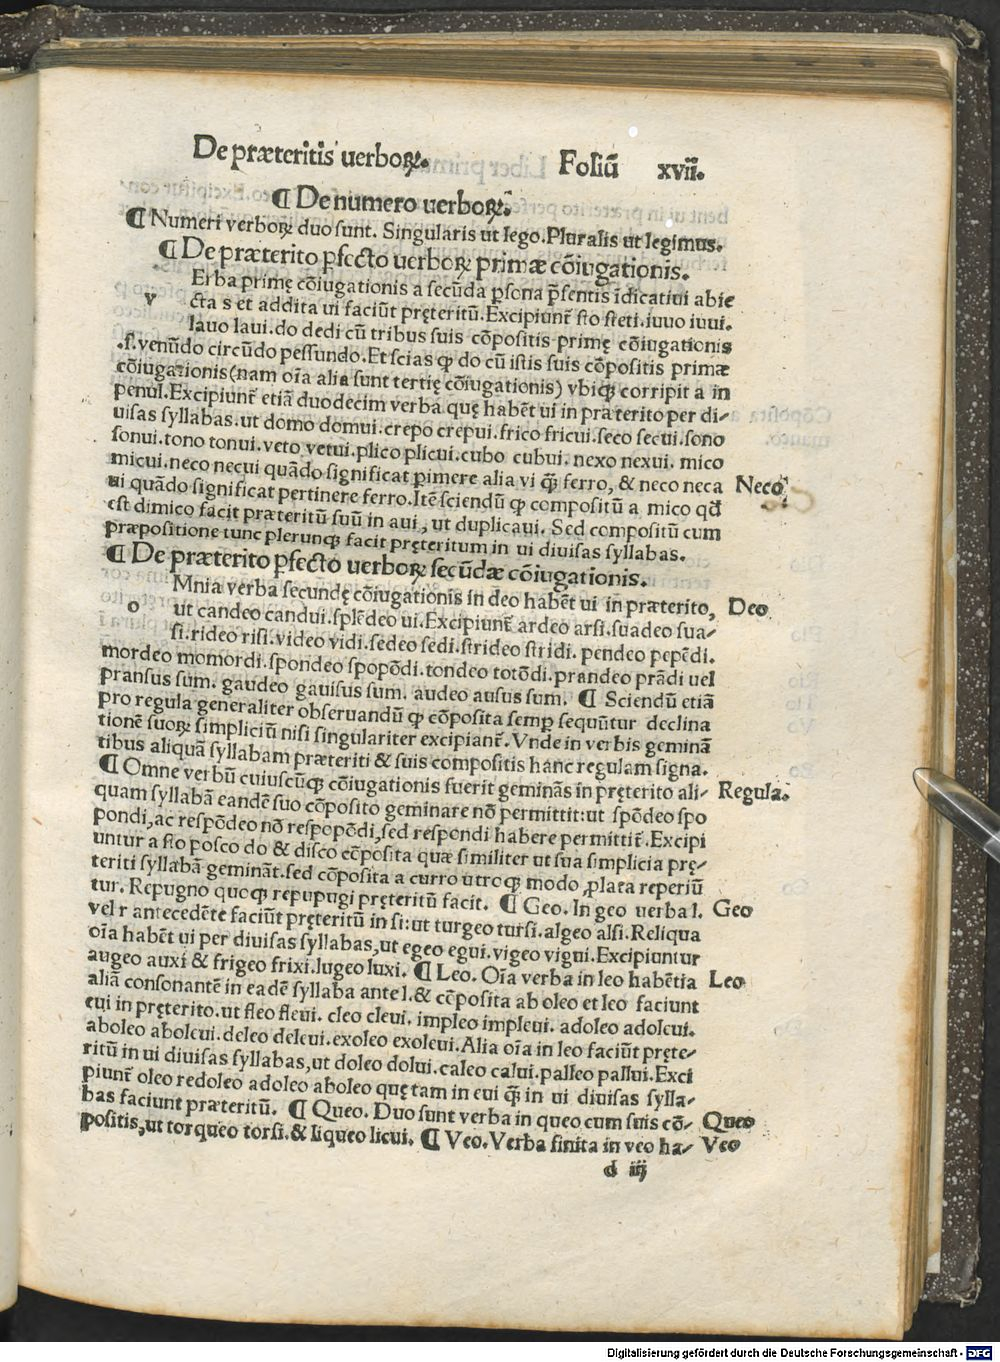 De præteritis uerboꝝ. Foliū xvii.
¶ De numero uerboꝝ.
¶ Numeri verboꝝ duo sunt. Singularis ut lego. Pluralis ut legimus.
¶ De præterito ꝑfecto uerboꝝ primæ cōiugationis.
v Erba primę cōiugationis a secūda ꝑsona p̄sentis īdicatiui abie
cta s et addita ui faciūt pręteritū. Excipiunt᷑ sto steti. iuuo iuui.
lauo laui. do dedi cū tribus suis cōpositis primę cōiugationis
.s. venūdo circūdo pessundo. Et scias ꝙ do cū istis suis cōpositis primæ
cōiugationis (nam oīa alia sunt tertię cōiugationis) vbiqꝫ corripit a in
penul. Excipiunt᷑ etiā duodecim verba quę habēt ui in præterito per di⸗
uisas syllabas. ut domo domui. crepo crepui. frico fricui. seco secui. sono
sonui. tono tonui. veto vetui. plico plicui. cubo cubui. nexo nexui. mico
micui. neco necui quādo significat ꝑimere alia vi q̄ꝫ ferro, & neco neca Neco
ui quādo significat pertinere ferro. Itē sciendū ꝙ compositū a mico qd̄
est dimico facit præteritū suū in aui, ut duplicaui. Sed compositū cum
præpositione tunc plerunqꝫ facit pręteritum in ui diuisas syllabas.
¶ De præterito ꝑfecto uerboꝝ secūdæ cōiugationis.
o Mnia verba secundę cōiugationis in deo habēt ui in præterito, Deo
ut candeo candui. splēdeo ui. Excipiunt᷑ ardeo arsi. suadeo sua⸗
si. rideo risi. video vidi. sedeo sedi. strideo stridi. pendeo pepēdi.
mordeo momordi. spondeo spopōdi. tondeo totōdi. prandeo prādi uel
pransus sum. gaudeo gauisus sum. audeo ausus sum. ¶ Sciendū etiā
pro regula generaliter obseruandū ꝙ cōposita semꝑ sequūtur declina
tionē suoꝝ simpliciū nisi singulariter excipiant᷑. Vnde in verbis geminā
tibus aliquā syllabam præteriti & suis compositis hanc regulam signa.
¶ Omne verbū cuiuscūqꝫ cōiugationis fuerit geminās in pręterito ali⸗ Regula.
quam syllabā eandē suo cōposito geminare nō permittit: ut spōdeo spo
pondi, ac respōdeo nō respopōdi, sed respondi habere permittit᷑. Excipi
untur a sto posco do & disco cōposita quæ similiter ut sua simplicia prę⸗
teriti syllabā gemināt. sed cōposita a curro utroqꝫ modo ꝓlata reperiū
tur. Repugno quoqꝫ repupugi pręteritū facit. ¶ Geo. In geo uerba l. Geo
vel r antecedēte faciūt pręteritū in si: ut turgeo tursi. algeo alsi. Reliqua
oīa habēt ui per diuisas syllabas, ut egeo egui. vigeo vigui. Excipiuntur
augeo auxi & frigeo frixi. lugeo luxi. ¶ Leo. Oīa verba in leo habētia Leo
aliā consonantē in eadē syllaba ante l. & cōposita ab oleo et leo faciunt
eui in pręterito. ut fleo fleui. cleo cleui. impleo impleui. adoleo adoleui.
aboleo aboleui. deleo deleui. exoleo exoleui. Alia oīa in leo faciūt pręte⸗
ritū in ui diuisas syllabas, ut doleo dolui. caleo calui. palleo pallui. Exci
piunt᷑ oleo redoleo adoleo aboleo quę tam in eui q̄ꝫ in ui diuisas sylla⸗
bas faciunt præteritū. ¶ Queo. Duo sunt verba in queo cum suis cō⸗ Queo
positis, ut torqueo torsi. & liqueo licui. ¶ Veo. Verba finita in veo ha⸗ Veo
d iij
Digitalisierung gefördert durch die Deutsche Forschungsgemeinschaft - DFG